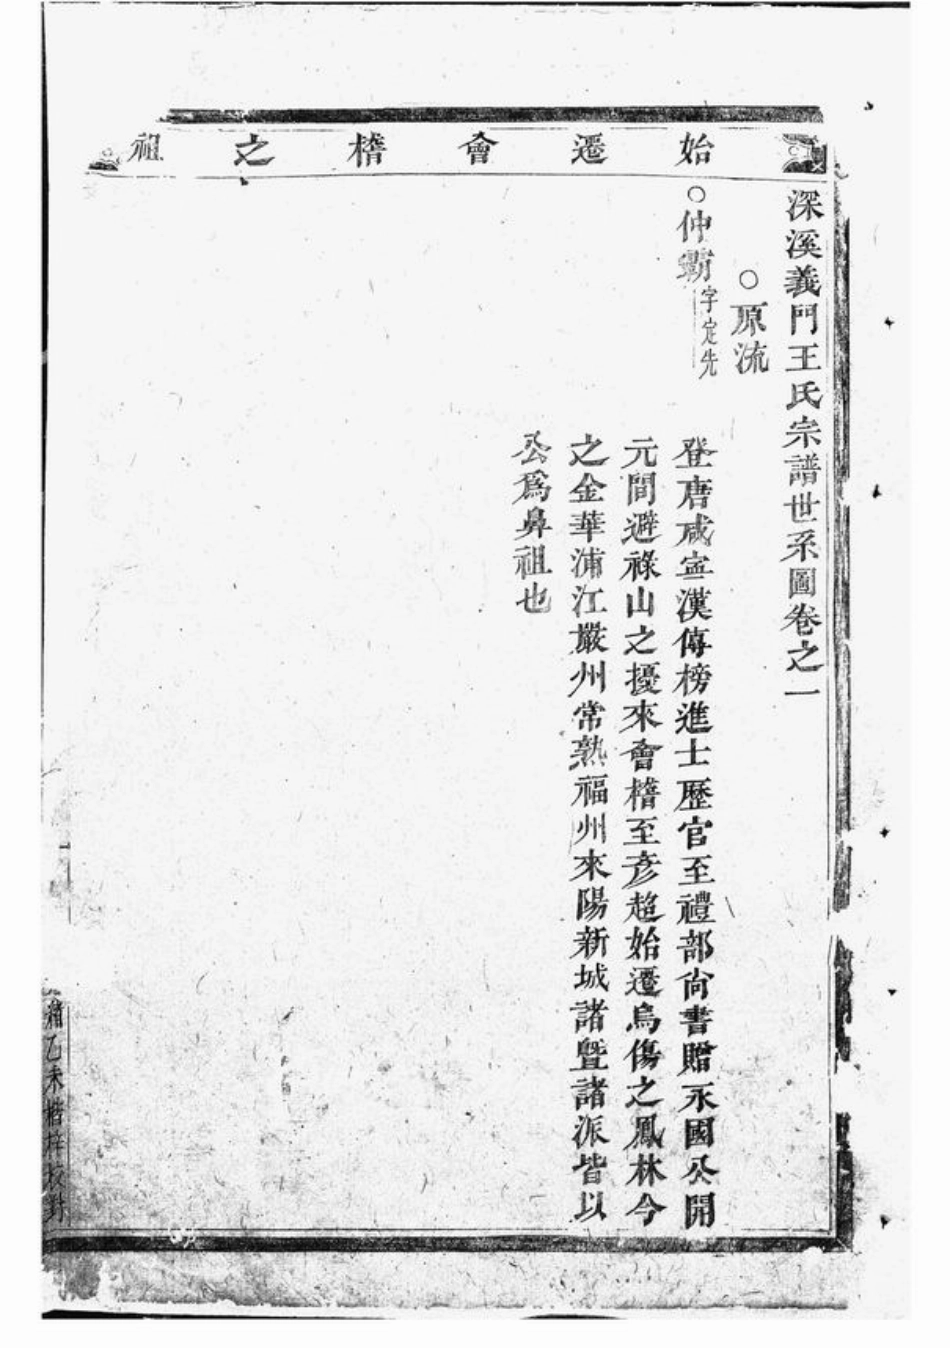 始遷會稽之祖
深溪義門王氏宗譜世系圖卷之一
○原流
○仲霸字定先
登唐咸寧漢傅榜進士歷官至禮部尙書贈永國公開
元間避祿山之擾來會稽至彥超始遷烏傷之鳳林今
之金華浦江嚴州常熟福州來陽新城諸暨諸派皆以
公爲鼻祖也
乙未
校對